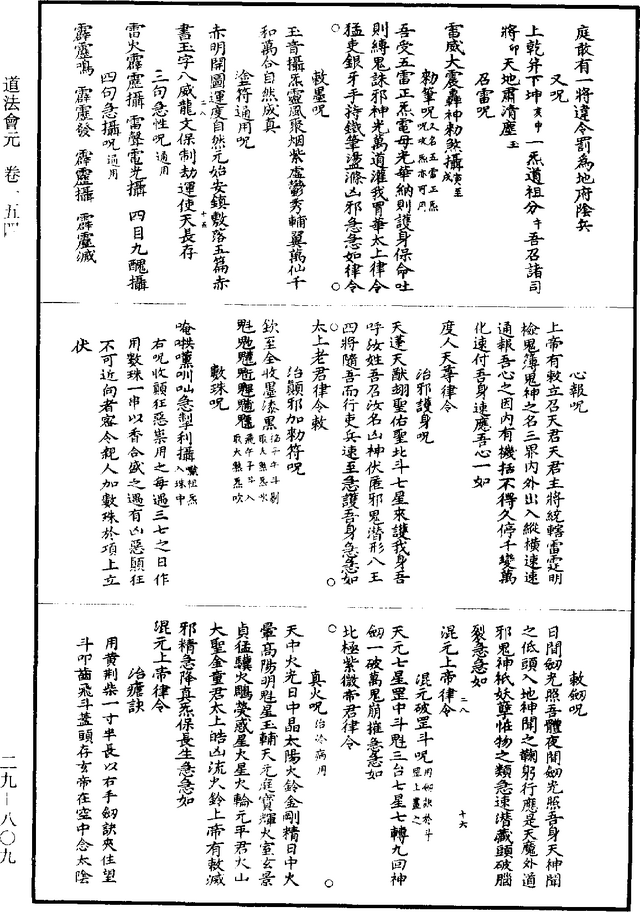 庭敢有一將違令罰為地府陰兵
又呪
上乾并下坤亥申一炁道祖分午吾召諸司
將卯天地肅清塵玉
召雷呪
雷威大震轟神勑煞攝寅至戌
勑筆呪
吾受五雷正炁電母光華納則護身保命吐
則縛鬼誅邪神光萬道灌我胃華太上律令
猛吏銀牙手持鐵筆盪滌凶邪急急如律令
敕墨呪
玉音攝炁靈風聚烟紫虛鬱秀輔翼萬仙千
和萬合自然成真
塗符通用呪
赤明開圖運度自然元始安鎮敷落五篇赤
書玉字八威龍文保制劫運使天長存
三句急性呪通用
雷火霹靂攝 雷聲電光攝 四目九醜攝
四句急攝呪通用
霹靂鳴 霹靂發 霹靂攝 霹靂滅
道法會元 卷一五四
心報呪
上帝有敕立召天君天君主將統轄雷霆明
檢鬼簿鬼神之名三界內外出入縱橫速速
通報吾心之因內有機括不得久停千變萬
化速付吾身速應吾心一如
度人天尊律令
治邪護身呪
天蓬天猷翊聖佑聖北斗七星來護我身吾
呼汝姓吾召汝名凶神伏屠邪鬼潛形八王
四將隨吾而行吏兵速至急護吾身急急如
太上老君律令敕
治顛邪加勑符呪
欽至全收墨漆黑
敷珠呪
右呪收顛狂惡祟用之每遇三七之日作
用數珠一串以香合盛之遇有凶惡顛狂
不可近向者密令親人加數珠於項上立
伏
敕劒呪
日間劒光照吾體夜間劒光照吾身天神聞
之低頭入地神聞之鞠躬行應是天魔外道
邪鬼神祇妖孽怪物之類急速潛藏頭破腦
裂急急如
混元上帝律令
混元破罡斗呪
天元七星罡中斗魁三台七星七轉九回神
劒一破萬鬼崩摧急急如
北極紫微帝君律令
真火呪治冷病用
天中火光日中晶太陽火鈴金剛精日中火
暈高陽明魁星玉輔天元庭寶輝火室玄景
貞猛驤火鵰熒惑星大星火輪元平君火山
大聖金童君太上皓凶流火鈴上帝有敕滅
邪精急降真炁保長生急急如
混元上帝律令
治瘧訣
用黃荆柴一寸半長以右手劒訣夾住望
斗叩齒飛斗蓋頭存玄帝在空中念太陰
二九－八〇九